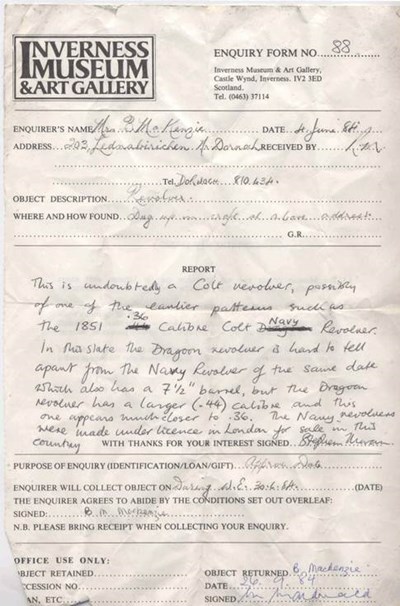 INVERNESS
MUSEUM
& ART GALLERY
ENQUIRY FORM NO. 88
Inverness Museum & Art Gallery,
Castle Wynd, Inverness. IV2 3ED
Scotland.
Tel. (0463) 37114
ENQUIRER'S NAME Mrs B MacKenzie DATE 4 June 84
ADDRESS 203, Lednabirichen, Nr Dornoch RECEIVED BY
Tel. Dornoch 810434.
OBJECT DESCRIPTION Revolver.
WHERE AND HOW FOUND Dug up on croft at above address.
G.R.
REPORT
This is undoubtedly a Colt revolver, possibly
of one of the earlier patterns such as
the 1851 .36 Calibre Colt Navy Revolver.
In this state the Dragoon revolver is hard to tell
apart from the Navy Revolver of the same date
which also has a 7½" barrel, but the Dragoon
revolver has a larger (.44) calibre and this
one appears much closer to .36. The Navy revolvers
were made under licence in London for sale in this
country WITH THANKS FOR YOUR INTEREST SIGNED Stephen
PURPOSE OF ENQUIRY (IDENTIFICATION/LOAN/GIFT) Approx Date
ENQUIRER WILL COLLECT OBJECT ON During W.E. 30.6.84. (DATE)
THE ENQUIRER AGREES TO ABIDE BY THE CONDITIONS SET OUT OVERLEAF:
SIGNED: B. M. MacKenzie
N.B. PLEASE BRING RECEIPT WHEN COLLECTING YOUR ENQUIRY.
OFFICE USE ONLY:
OBJECT RETAINED OBJECT RETURNED B. Mackenzie
CCESSION NO. DATE 26.9.84
AN, ETC SIGNED